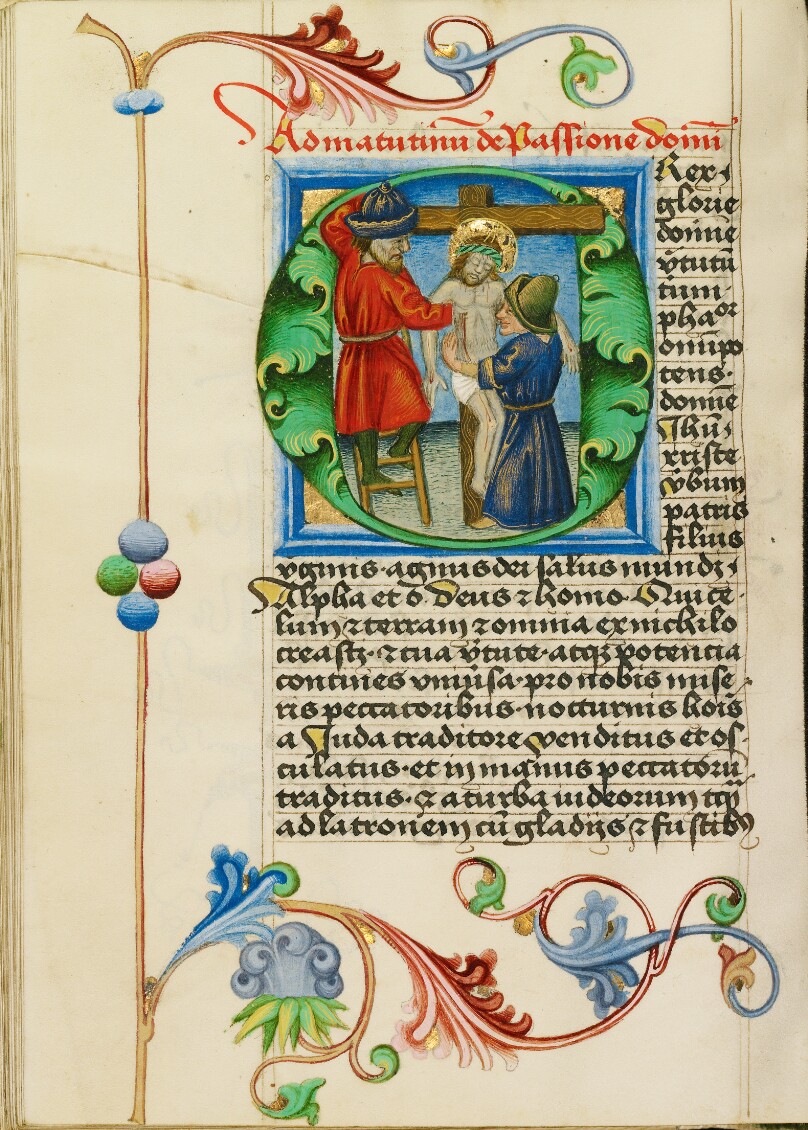 Ad matutinū de Passione domī
Rex
glorie
domīe
v̄tutū
tuīm
phaoꝛ
om̄ipo
tens·
domīe
Jhū
xr̄iste
v̄bum
patris
filius
v̄ginis· agnus dei salus mundi·
Alpha et o· Deus ⁊ homo· Qui ce
lum ⁊ terram ⁊ omnia ex nichilo
creasti· ⁊ tua v̄tute· atqꝫ potencia
contines vniūsa· pro nobis mise
ris peccatoribus· nocturnis hoīs
a Juda traditore venditus et os
culatus· et in manus peccatorū
traditus· ⁊ a turba iudeorum tqꝫ
ad latronem cū gladijs ⁊ fustibꝰ